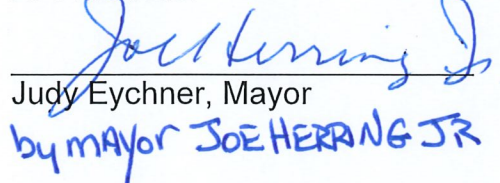 Joe Herring Jr
Judy Eychner, Mayor
by MAYOR JOE HERRING JR